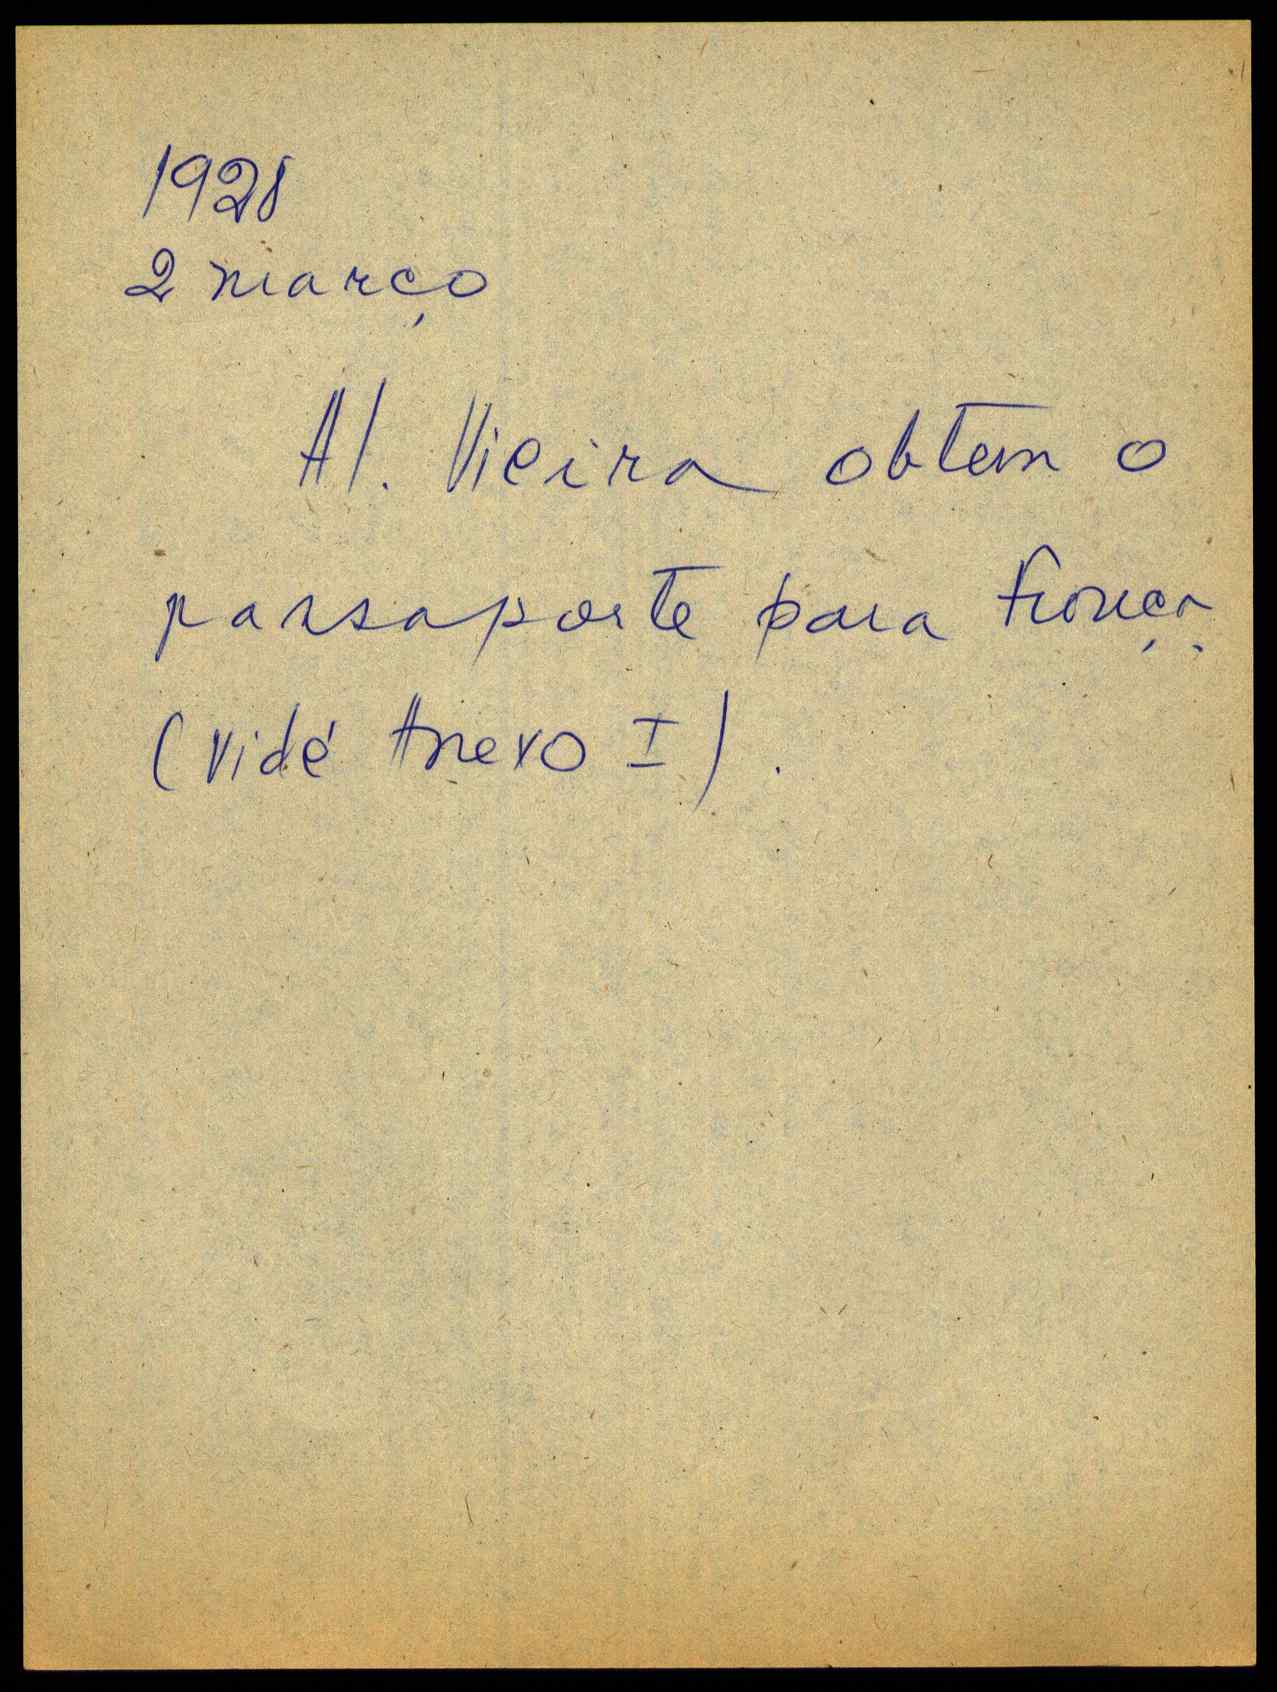 1928
2 março
Al. Vieira obtem o
passaporte para França.
(vidé Anexo I).